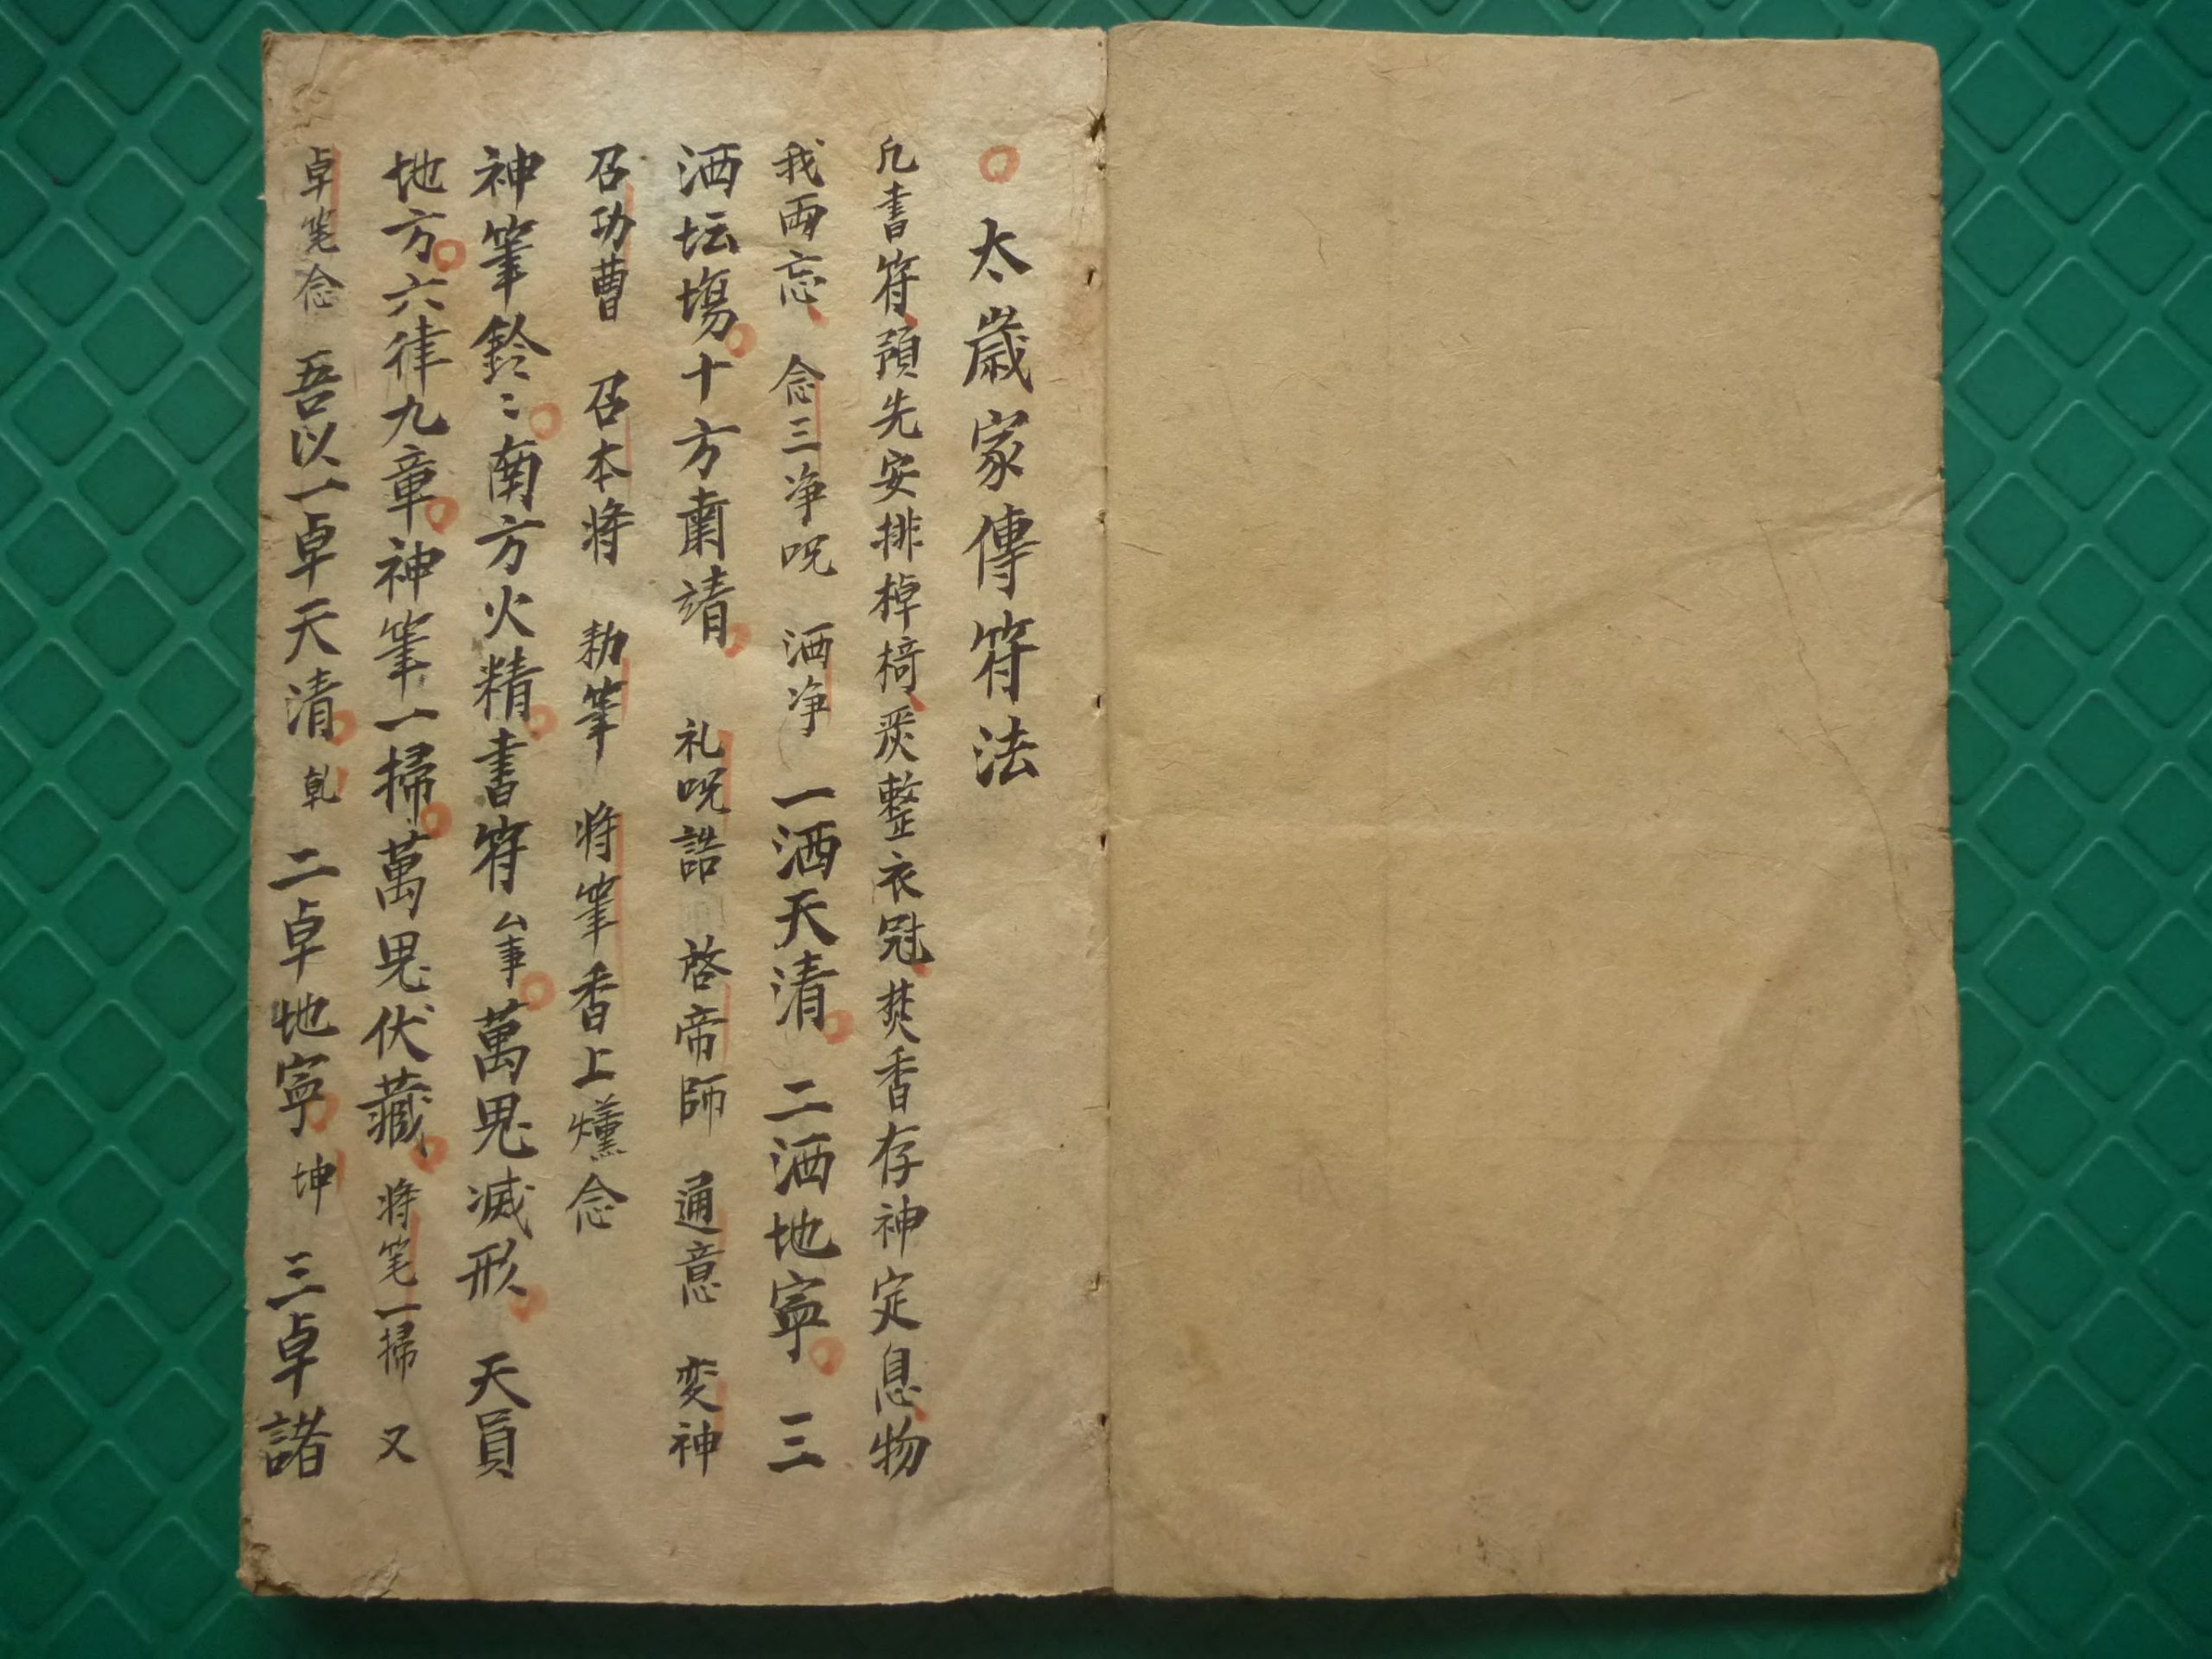 太歲家傳符法
凡書符預先安排棹椅嚴整衣冠焚香存神定息物
我兩忘 念三净呪 洒净 一洒天清 二洒地寧 三
洒坛塲十方肅靖 礼呪誥 啓帝師 通意 变神
召功曹 召本将 勑筆 将筆香上燻念
神筆鈴〻南方火精書符厶事萬鬼滅形 天員
地方六律九章神筆一掃萬鬼伏藏 将笔一掃 又
卓笔念 吾以一卓天清 乹 二卓地寧 坤 三卓諸